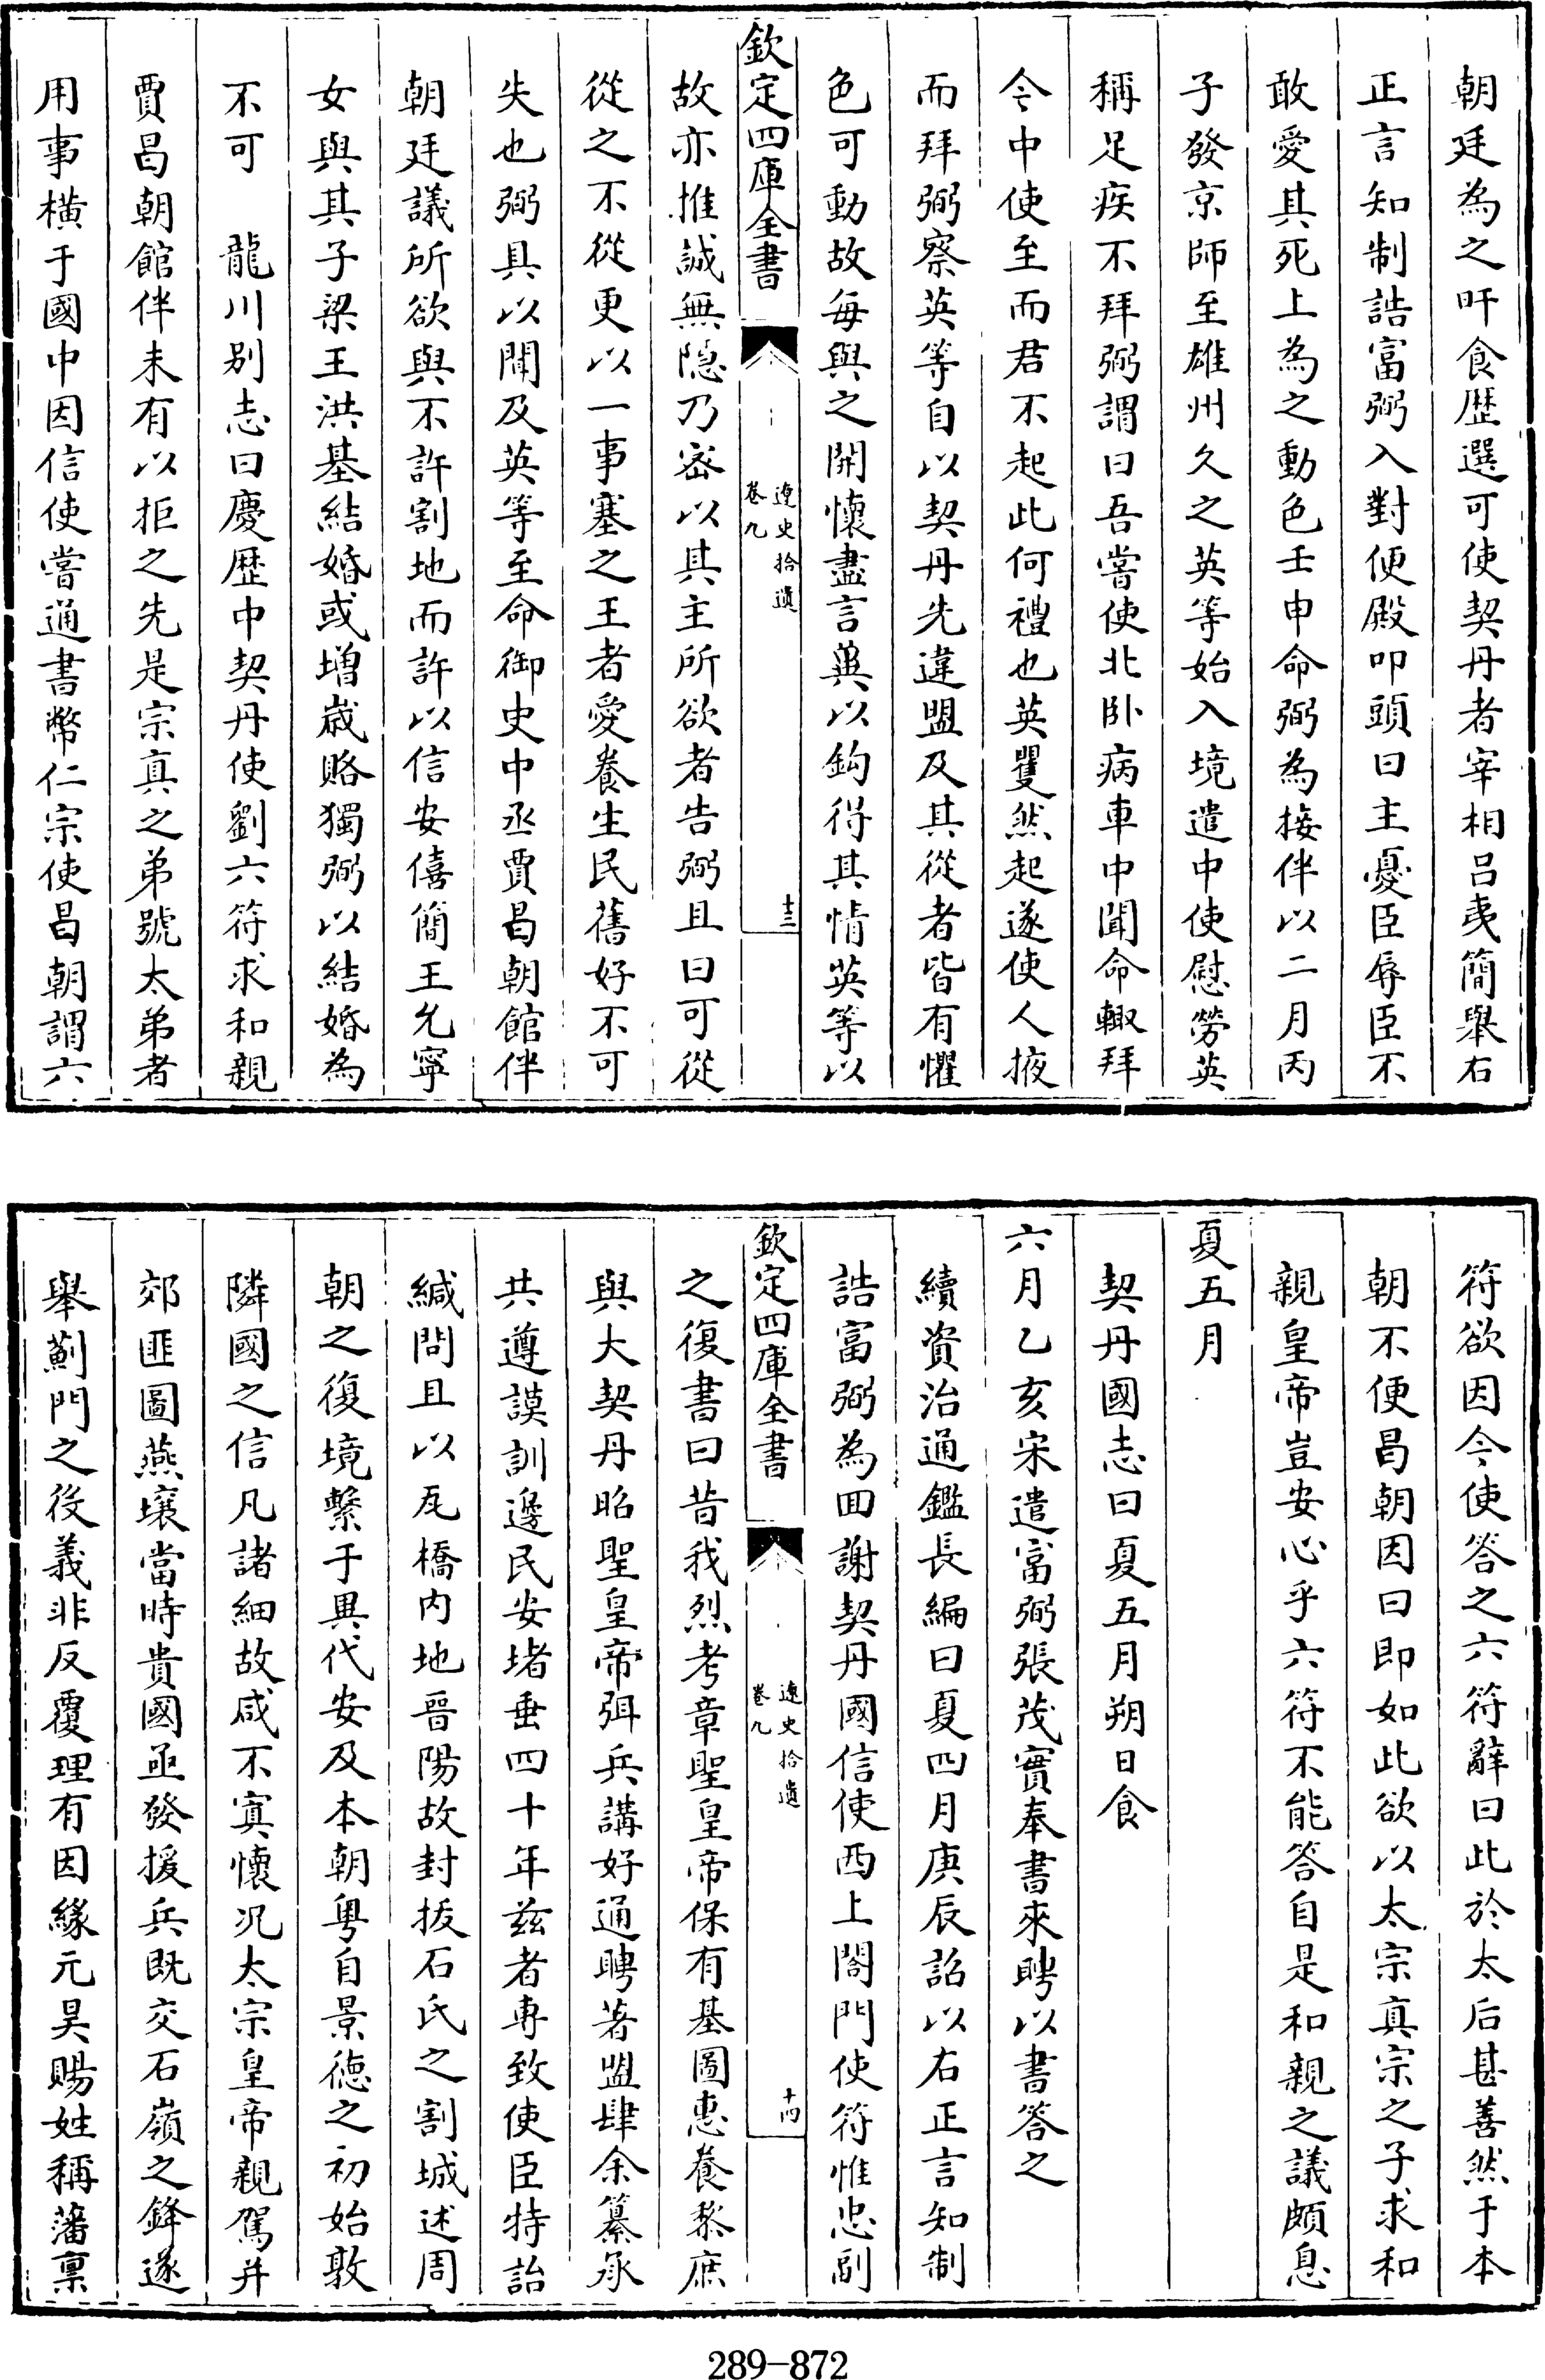 朝廷為之旰食歴選可使契丹者宰相吕夷簡舉右
正言知制誥富弼入對便殿叩頭曰主憂臣辱臣不
敢愛其死上為之動色壬申命弼為接伴以二月丙
子發京師至雄州久之英等始入境遣中使慰勞英
稱足疾不拜弼謂曰吾嘗使北卧病車中聞命輙拜
今中使至而君不起此何禮也英矍然起遂使人掖
而拜弼察英等自以契丹先違盟及其從者皆有懼
色可動故每與之開懷盡言冀以鈎得其情英等以
欽定四庫全書
遼史拾遺
卷九
十三
故亦推誠無隠乃密以其主所欲者告弼且曰可從
從之不從更以一事塞之王者愛養生民舊好不可
失也弼具以聞及英等至命御史中丞賈昌朝館伴
朝廷議所欲與不許割地而許以信安僖簡王允寧
女與其子梁王洪基結婚或增嵗賂獨弼以結婚為
不可　龍川别志曰慶歴中契丹使劉六符求和親
賈昌朝館伴未有以拒之先是宗真之弟號太弟者
用事橫于國中因信使嘗通書幣仁宗使昌朝謂六
符欲因今使答之六符辭曰此於太后甚善然于本
朝不便昌朝因曰即如此欲以太宗真宗之子求和
親皇帝豈安心乎六符不能答自是和親之議頗息
夏五月
契丹國志曰夏五月朔日食
六月乙亥宋遣富弼張茂實奉書來聘以書答之
續資治通鑑長編曰夏四月庚辰詔以右正言知制
誥富弼為回謝契丹國信使西上閤門使符惟忠副
欽定四庫全書
遼史拾遺
卷九
十四
之復書曰昔我烈考章聖皇帝保有基圖惠養黎庶
與大契丹昭聖皇帝弭兵講好通聘著盟肆余纂承
共遵謨訓邊民安堵垂四十年兹者專致使臣特詒
緘問且以瓦橋内地晉陽故封援石氏之割城述周
朝之復境繫于異代安及本朝粤自景德之初始敦
隣國之信凡諸細故咸不寘懷况太宗皇帝親駕并
郊匪圖燕壤當時貴國亟發援兵既交石嶺之鋒遂
舉薊門之役義非反覆理有因緣元昊賜姓稱藩稟
289-872